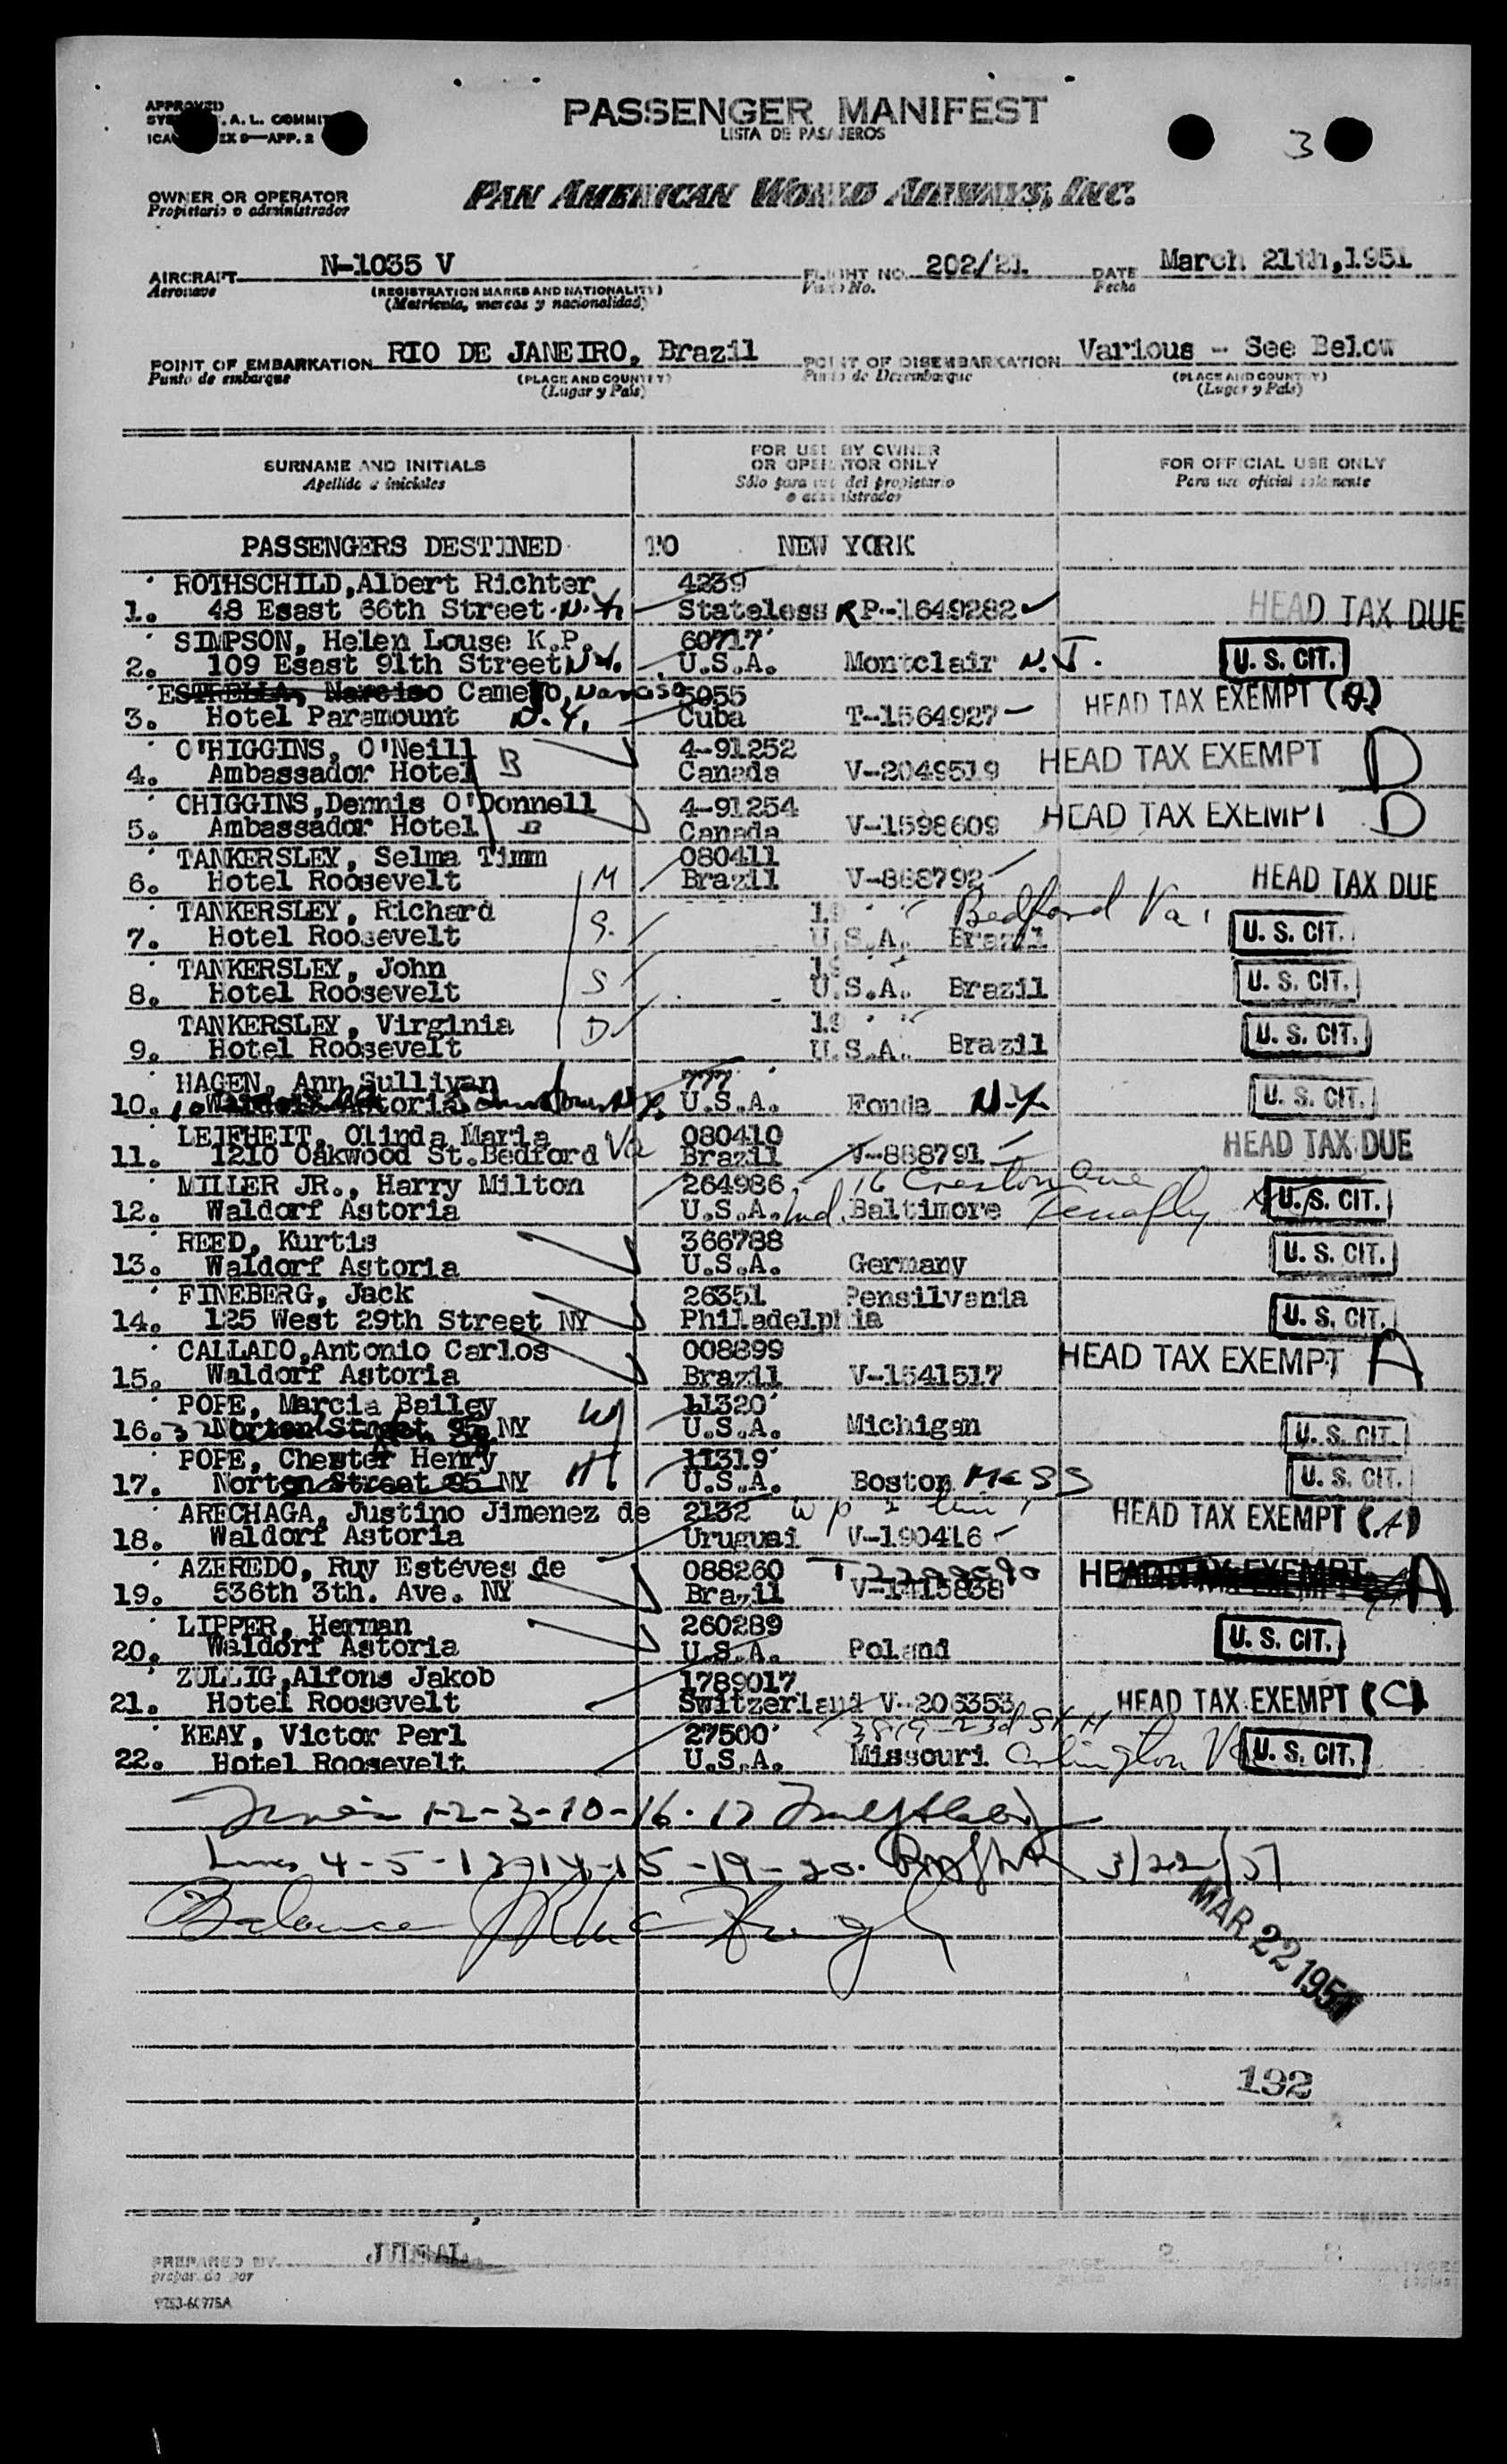 PASSENGER MANIFEST
LISTA DE PASAJEROS
3
OWNER OR OPERATOR
Propietario o administrador
PAN AMERICAN WORLD AIRWAYS, INC.
AIRCRAFT N-1035 V FLIGHT NO. 202/21. DATE March 21th,1951
Aeronave (REGISTRATION MARKS AND NATIONALITY) Vuelo No. Fecha
(Matrícula, marcas y nacionalidad)
POINT OF EMBARKATION RIO DE JANEIRO, Brazil POINT OF DISEMBARKATION Various - See Below
Punto de embarque (PLACE AND COUNTRY) Punto de Desembarque (PLACE AND COUNTRY)
(Lugar y País) (Lugar y País)
SURNAME AND INITIALS FOR USE BY OWNER OR OPERATOR ONLY FOR OFFICIAL USE ONLY
Apellido e iniciales Sólo para uso del propietario o administrador Para uso oficial solamente
PASSENGERS DESTINED TO NEW YORK
ROTHSCHILD,Albert Richter 4239
1. 48 Esast 66th Street N.Y. Stateless RP-1649282 HEAD TAX DUE
SIMPSON, Helen Louse K.P. 60717
2. 109 Esast 91th Street N.Y. U.S.A. Montclair N.J. U. S. CIT.
ESTRELLA, Narciso Camejo, Narciso 5055
3. Hotel Paramount N.Y. Cuba T-1564927 HEAD TAX EXEMPT
O'HIGGINS, O'Neill 4-91252
4. Ambassador Hotel B Canada V-2049519 HEAD TAX EXEMPT D
OHIGGINS,Dennis O'Donnell 4-91254
5. Ambassador Hotel B Canada V-1598609 HEAD TAX EXEMPT D
TANKERSLEY, Selma Timm 080411
6. Hotel Roosevelt M Brazil V-888792 HEAD TAX DUE
TANKERSLEY, Richard Bedford Va.
7. Hotel Roosevelt S. U.S.A. Brazil U. S. CIT.
TANKERSLEY, John
8. Hotel Roosevelt S U.S.A. Brazil U. S. CIT.
TANKERSLEY, Virginia
9. Hotel Roosevelt D U.S.A. Brazil U. S. CIT.
HAGEN, Ann Sullivan 777
10. Waldorf Astoria U.S.A. Fonda N.Y. U. S. CIT.
LEIFHEIT, Olinda Maria 080410
11. 1210 Oakwood St.Bedford Va Brazil V-888791 HEAD TAX DUE
MILLER JR., Harry Milton 264986 16 Creston Ave
12. Waldorf Astoria U.S.A. Md. Baltimore Tenafly U. S. CIT.
REED, Kurtis 366788
13. Waldorf Astoria U.S.A. Germany U. S. CIT.
FINEBERG, Jack 26351 Pensilvania
14. 125 West 29th Street NY Philadelphia U. S. CIT.
CALLADO,Antonio Carlos 008899
15. Waldorf Astoria Brazil V-1541517 HEAD TAX EXEMPT A
POPE, Marcia Bailey 11320
16. Norton Street 95 NY W U.S.A. Michigan U. S. CIT.
POPE, Chester Henry 11319
17. Norton Street 95 NY H U.S.A. Boston Mass U. S. CIT.
ARECHAGA, Justino Jimenez de 2132
18. Waldorf Astoria Uruguai V-190416 HEAD TAX EXEMPT (A)
AZEREDO, Ruy Esteves de 088260
19. 536th 3th. Ave. NY Brazil V-1415838 HEAD TAX EXEMPT A
LIPPER, Herman 260289
20. Waldorf Astoria U.S.A. Poland U. S. CIT.
ZULLIG,Alfons Jakob 1789017
21. Hotel Roosevelt Switzerland V-206353 HEAD TAX EXEMPT (C)
KEAY, Victor Perl 27500 3819-23d St N
22. Hotel Roosevelt U.S.A. Missouri Arlington Va U. S. CIT.
1-2-3-10-16-17
Lines 4-5-13-14-15-19-20. 3/22/51
Balance
MAR 22 1951
132
PREPARED BY